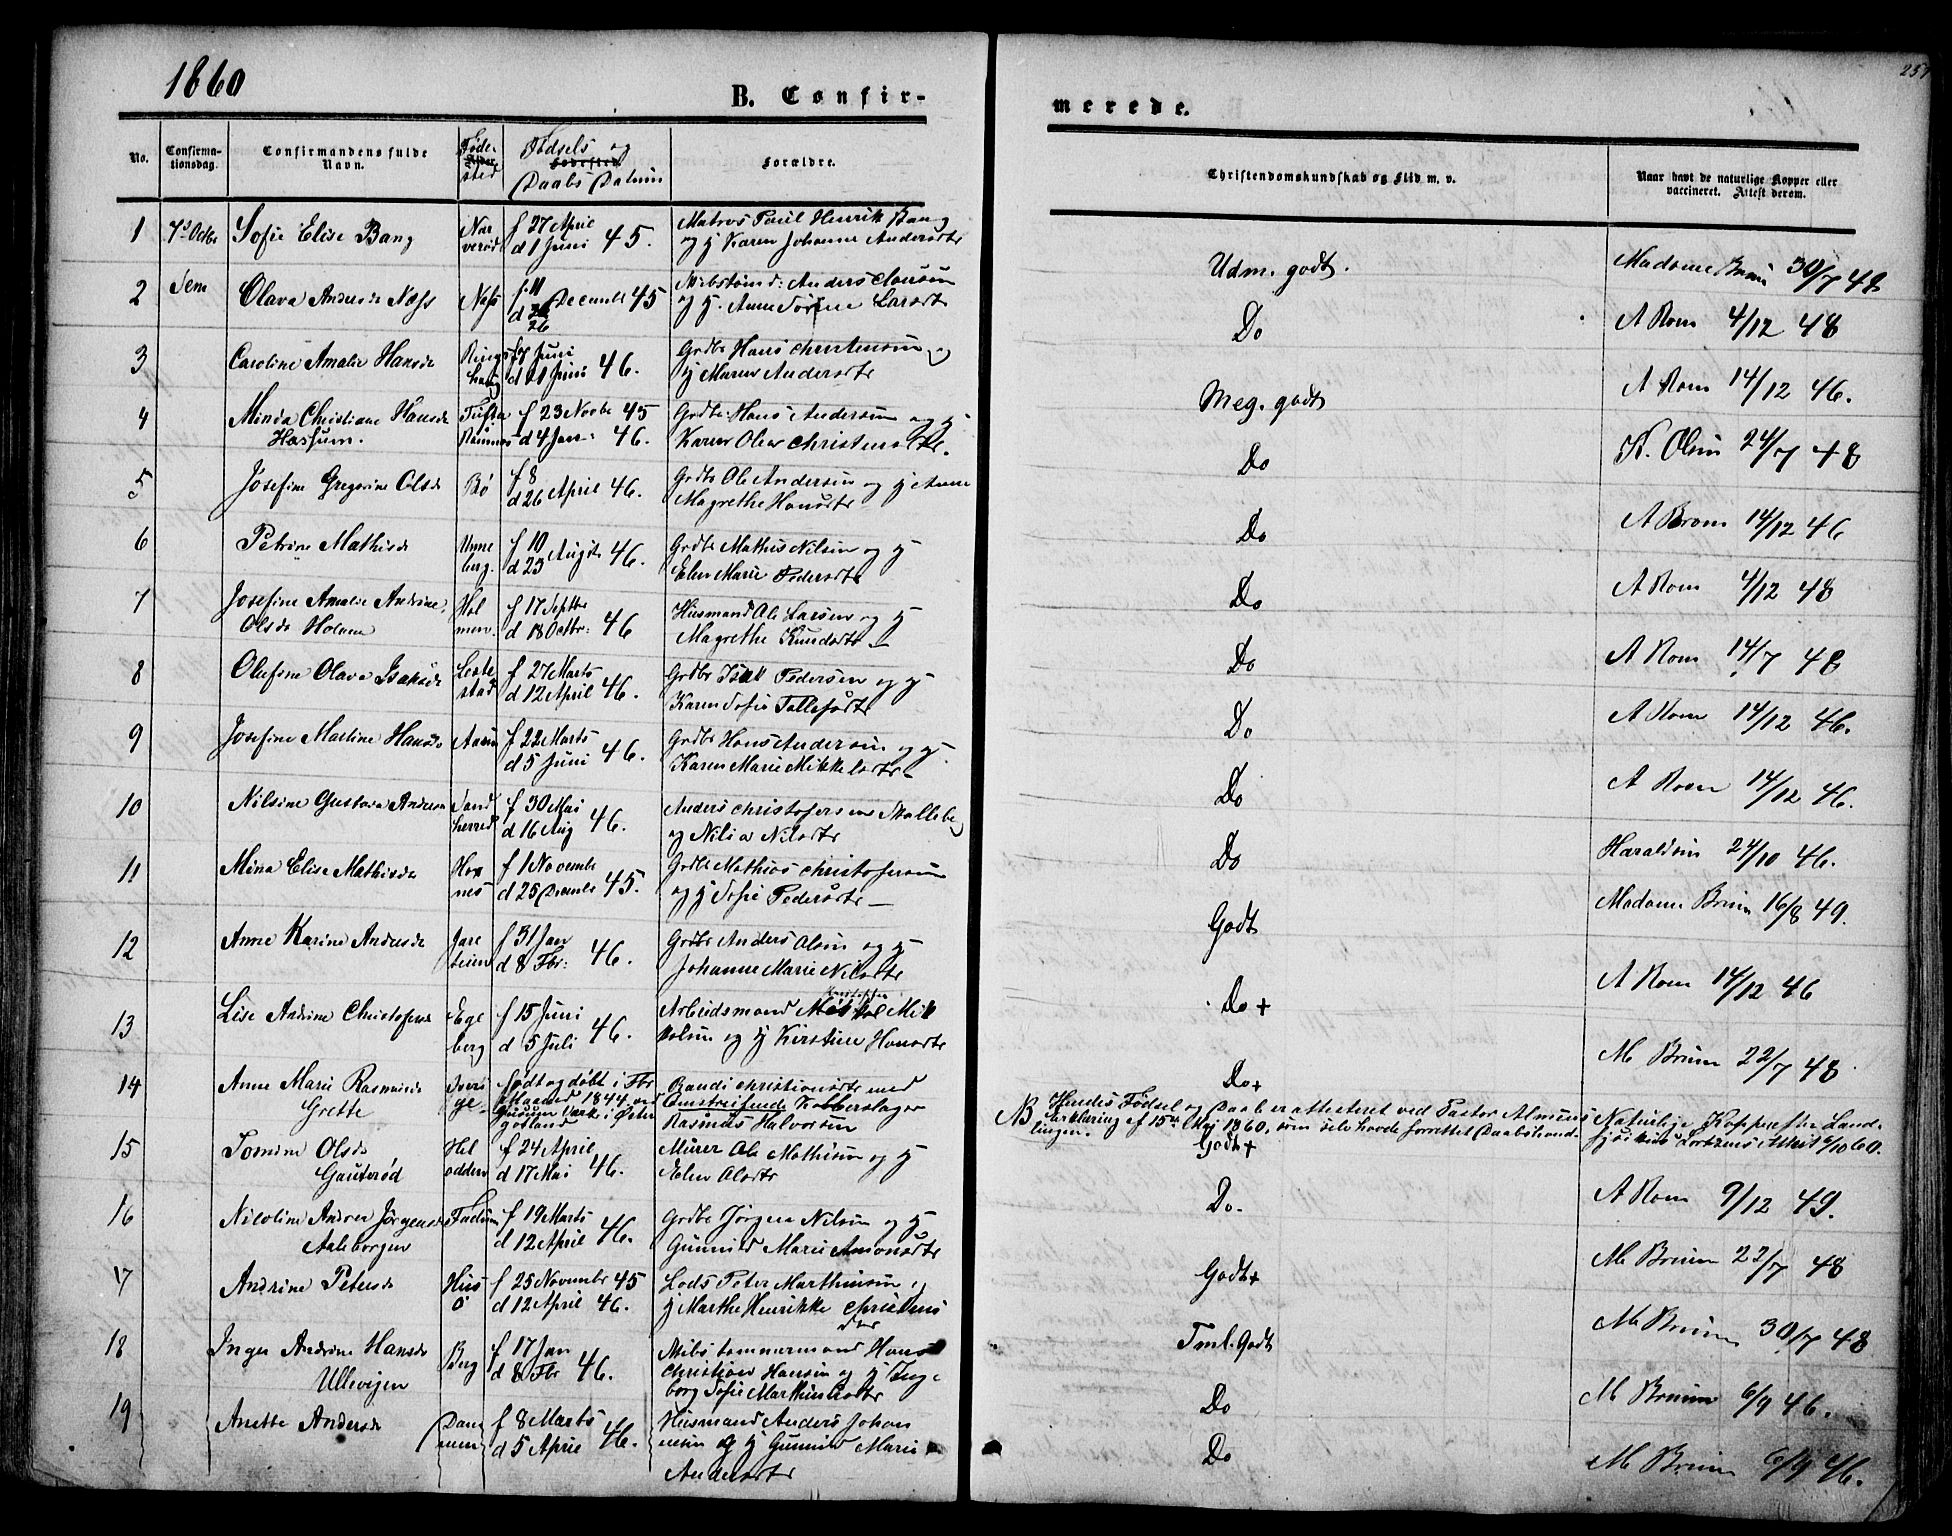 1860
B. Confir-
merede.
257
No.
Confirma-
tionsdag.
Confirmandens fulde
Navn.
Føde-
sted
Alder
Fødsels og
Fødested
Daabs Datum
Forældre.
Christendomskundskab og Flid m. v.
Naar havt de naturlige Kopper eller
vaccineret. Attest derom.
1 7de Octbr Sofie Elise Bang
f 27 April
d 1 Juni 45.
Matros Paul Henrik Bang
og h Karen Johanne Andersdtr
Udm. godt.
Madame Bruun 30/7 48
2 Dem Olava Andersdr Næss Næss
f 11
d 26 December 45
26
Anders Clausen
og h. Anne Larsdtr
Do
A Rom 4/12 48
3 Caroline Amalie Hansdr
f 7 Juni
d 21 Juni 46.
Grdbr Hans Christensen og
h Maren Andersdtr
Meg. godt
A Rom 14/12 46.
4 Minda Christiane Hansdr
f 23 Novbr 45
d 4 Jan: 46.
Grdbr. Hans Andersen og h
Karen Olea Christensdtr.
Do
K. Olsen 24/7 48
5 Josefine Gregorine Olsdr Bø
f 8
d 26 April 46.
Grdbr Ole Andersen og h Anne
Magrethe Hansdtr
Do
14/12 46
6 Petrine Mathisdr Unne
berg.
f 10
d 23 August 46.
Grdbr Mathis Nilsen og h
Elen Marie Pedersdtr
Do
A Rom 4/12 48
7 Josefine Amalie Andrine
Olsdr Holmen
Hol
men.
f 17 Septbr
d 18 Octbr: 46
Husmand Ole Larsen og h
Magrethe Knudsdtr
Do
A Rom 14/7 48
8 Olefine Olava Isaksdr
f 27 Marts
d 12 April 46.
Grdbr Isak Pedersen og h
Karen Sofie Tollefsdtr
Do
A Rom 14/12 46.
9 Josefine Martine Hansdr
f 22 Marts
d 5 Juni 46.
Grdbr Hans Andersen og h
Karen Marie Mikkelsdtr
Do
A Rom 14/12 46.
10 Nilsine Gustava Andersdr Sand
herred
f 30 Mai
d 16 Aug 46.
Anders Christofersen
og Nilia Nilsdtr
Do
Haraldsen 24/10 46.
11 Mina Elise Mathisdr
f 1 November
d 25 December 45.
Grdbr Mathias Christofersen
og h Sofie Pedersdtr
Godt
Madame Bruun 16/8 49.
12 Anne Karine Andersdr Jare
teien
f 31 Jan
d 8 Fbr: 46.
Grdbr Anders Olsen og h
Johanne Marie Nilsdtr
Do +
A Rom 14/12 46
13 Lise Andrine Christofersdr Ege
berg
f 15 Juni
d 5 Juli 46.
Arbeidsmand Mik
kelsen og h Kirstine Hansdtr
Do +
M Bruun 22/7 48
14 Anne Marie Rasmusdr
Grette
Sveri
ge
født og døbt i Fbr
Maaned 1844 ved
Værk i Øster
gotland
Randi Christiansdtr med
Omstreifende Kobberslager
Rasmus Halvorsen
NB Hendes Fødsel og Daab er attesteret ved Pastor
Erklæring af 15de Mai 1860, som selv havde forrettet Daabshand-
lingen. Godt +
Naturlige Kopper efter Land-
Attest 6/10 60.
15 Tomine Olsdr
Gauterød
Hel
odden
f 24 April
d 17 Mai 46.
Murer Ole Mathisen og h
Elen Olsdtr
Do.
A Rom 9/12 49.
16 Nicoline Andrea Jørgensdr
Aaleborgen
f 19 Marts
d 12 April 46.
Grdbr Jørgen Nilsen og h
Gunnild Marie Amonsdtr
Godt +
M Bruun 22/7 48
17 Andrine Petersdr Hus
ö
f 25 November 45
d 12 April 46.
Lods Peter Marthinsen og
h Marthe Henrikke Christens
dtr
Tml. Godt
M Bruun 30/7 48
18 Inger Andrine Hansdr
Ullevigen
Berg
f 17 Jan
d 8 Fbr 46.
Tømmermand Hans
Christian Hansen og h Inge-
borg Sofie Marthinsdtr
Do
M Bruun 6/9 46.
19 Anette Andersdr Dam
men
f 8 Marts
d 5 April 46.
Husmand Anders Johan
nesen og h Gunnild Marie
Andersdtr
Do
M Bruun 6/9 46.